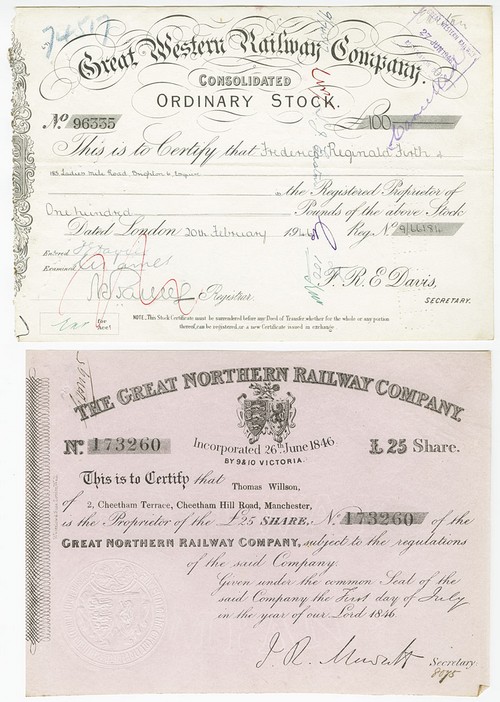 74517
Great Western Railway Company.
CONSOLIDATED
ORDINARY STOCK.
No 96335 £100
This is to Certify that Frederick Reginald Firth
183 Ladies Mile Road, Brighton 6, Esquire
is the Registered Proprietor of
One hundred Pounds of the above Stock
Dated London 20th February 194 Reg. No
Entered
Examined
Registrar.
F. R. E Davis,
SECRETARY.
NOTE, This Stock Certificate must be surrendered before any Deed of Transfer whether for the whole or any portion
thereof, can be registered, or a new Certificate issued in exchange.
THE GREAT NORTHERN RAILWAY COMPANY.
No. 173260 Incorporated 26th June 1846. £25 Share.
BY 9 & 10 VICTORIA.
This is to Certify that Thomas Willson,
of 2, Cheetham Terrace, Cheetham Hill Road, Manchester,
is the Proprietor of the £25 SHARE, No. 173260 of the
GREAT NORTHERN RAILWAY COMPANY, subject to the regulations
of the said Company.
Given under the common Seal of the
said Company the First day of July
in the year of our Lord 1846.
J. R. Mowatt Secretary.
8075